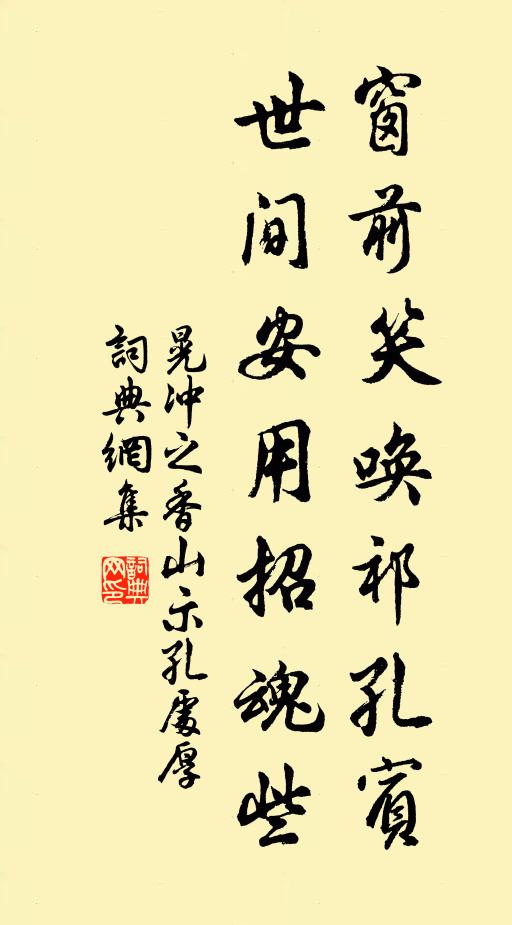 窗前笑喚祁孔賓
世間安用招魂些
晁沖之香山示孔處厚
詞典網集
詞典网印